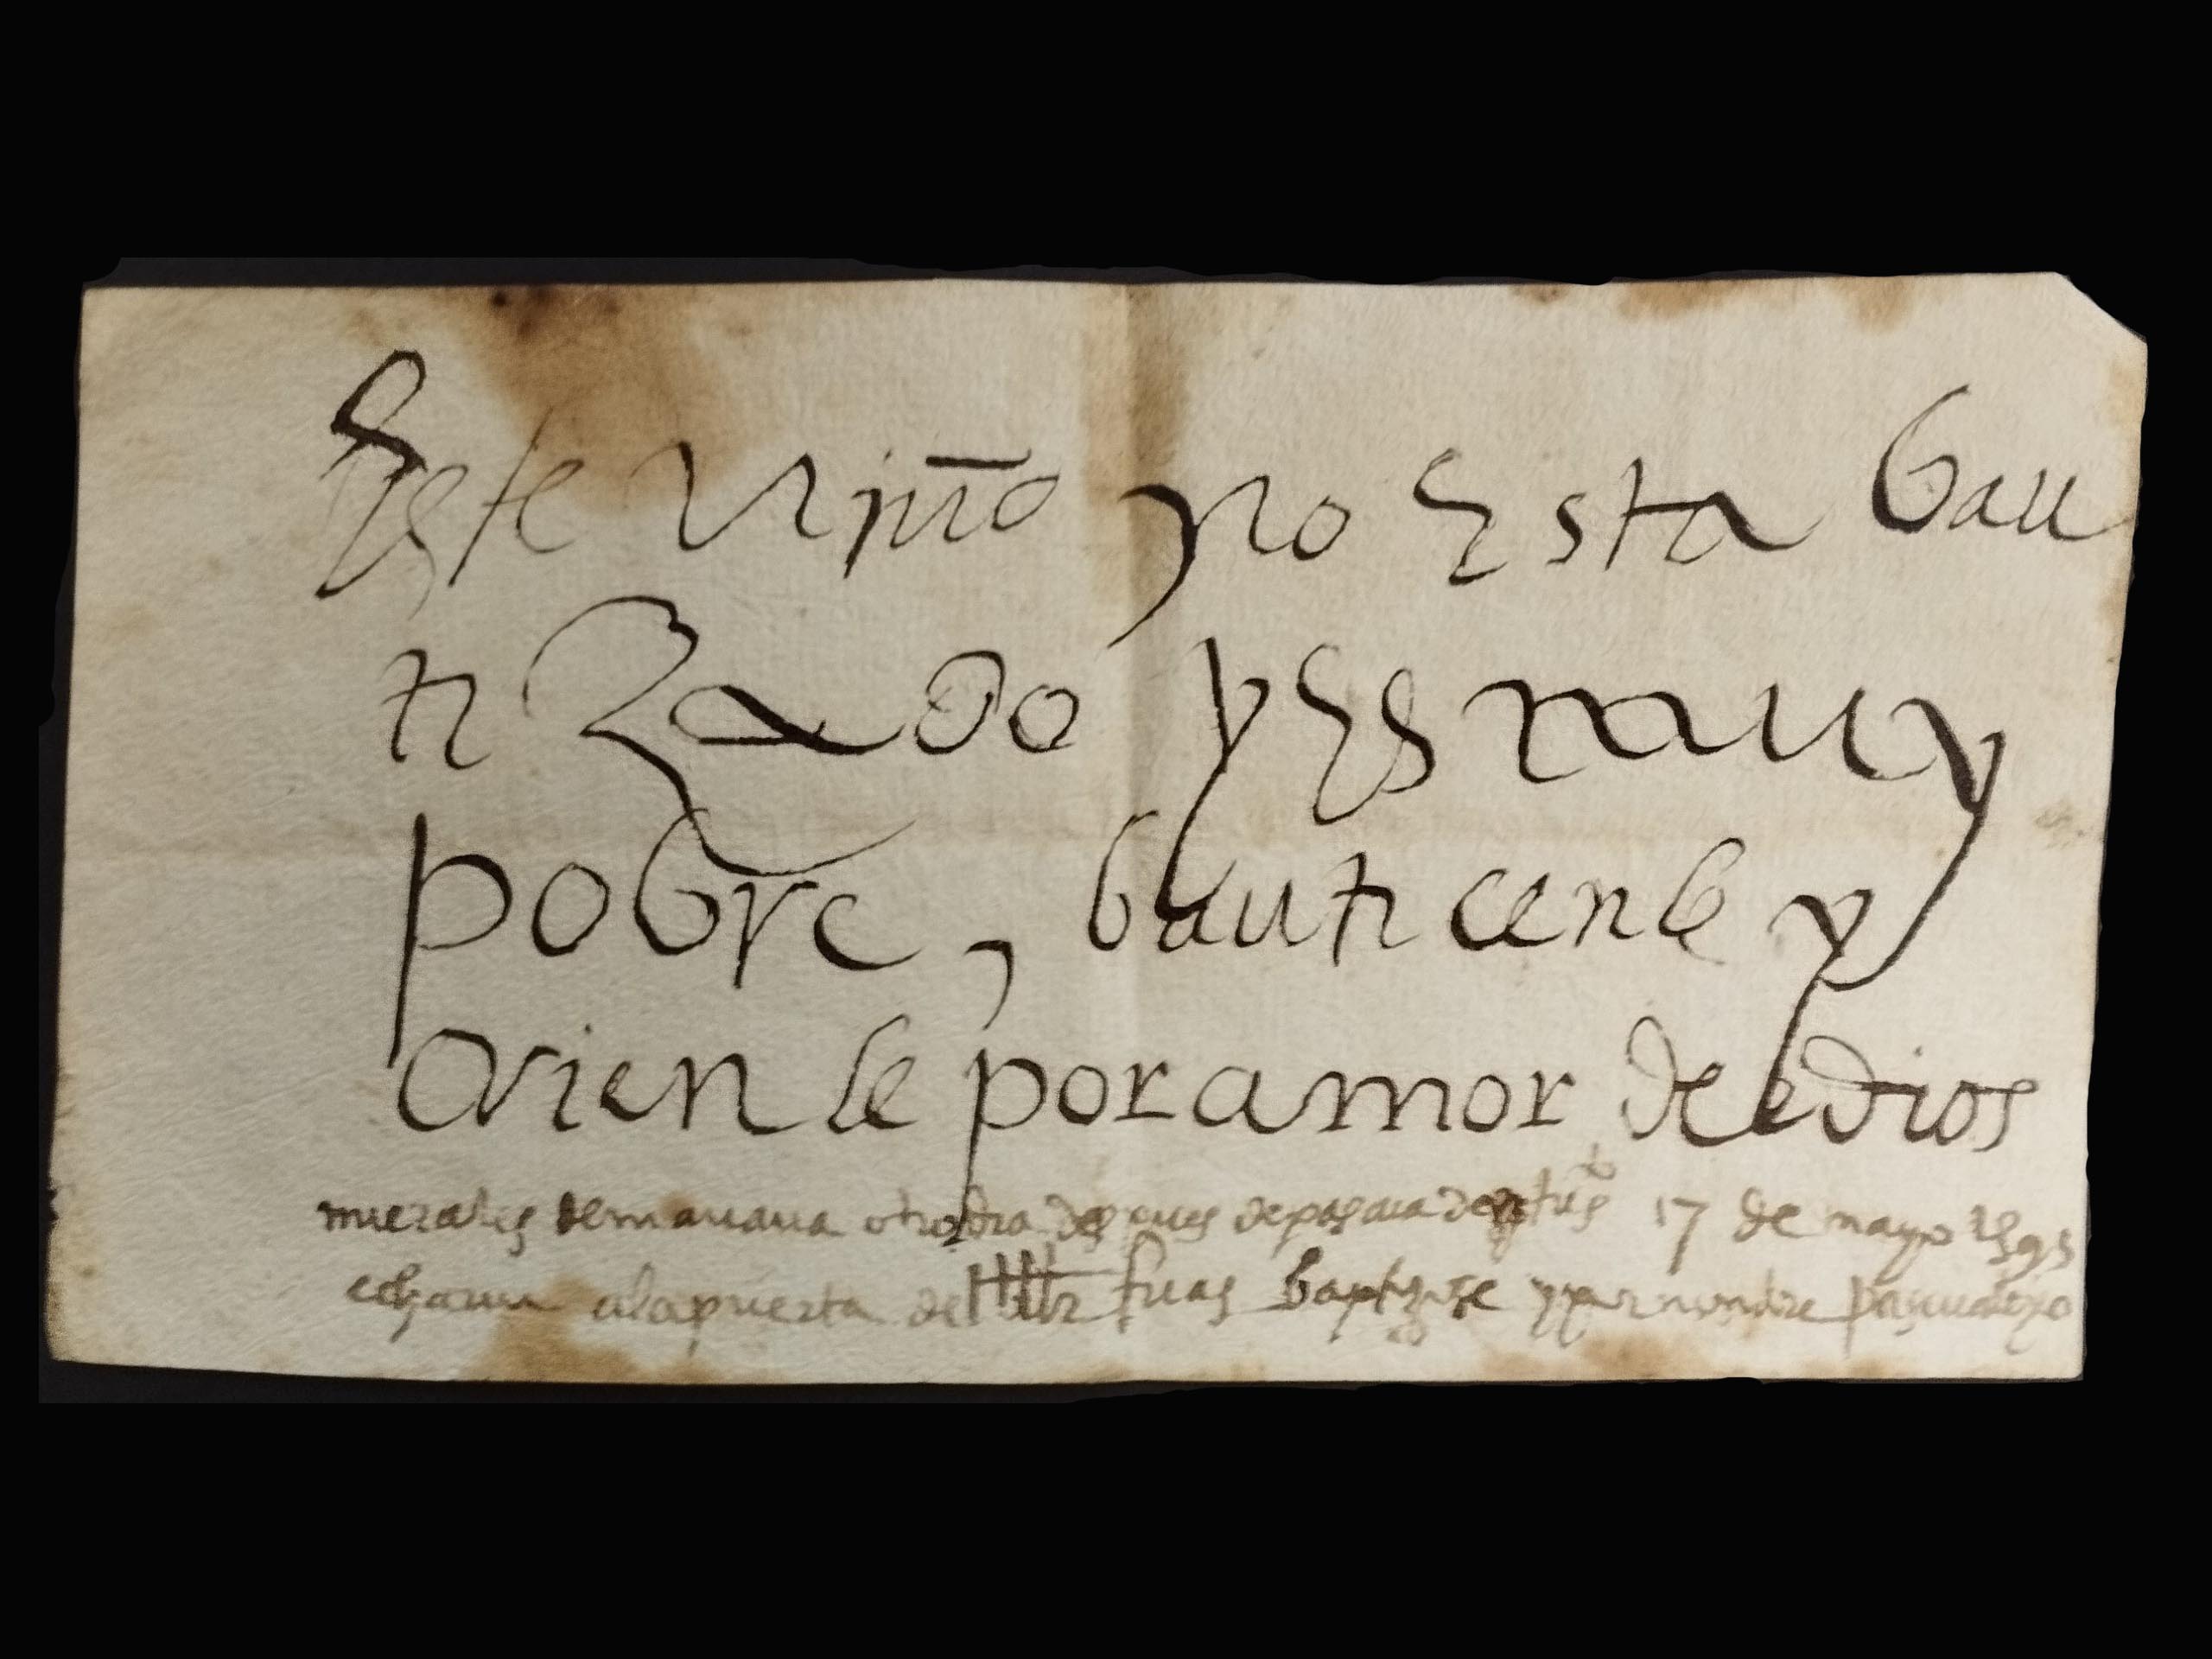 Este niño no Esta bau
tiZado y Es muy
pobre, bauticenle y
crienle por amor de dios
miercoles de mañana otro dia despues de pascua de 17 de mayo 1595
echaron a la puerta del baptizose y por nombre